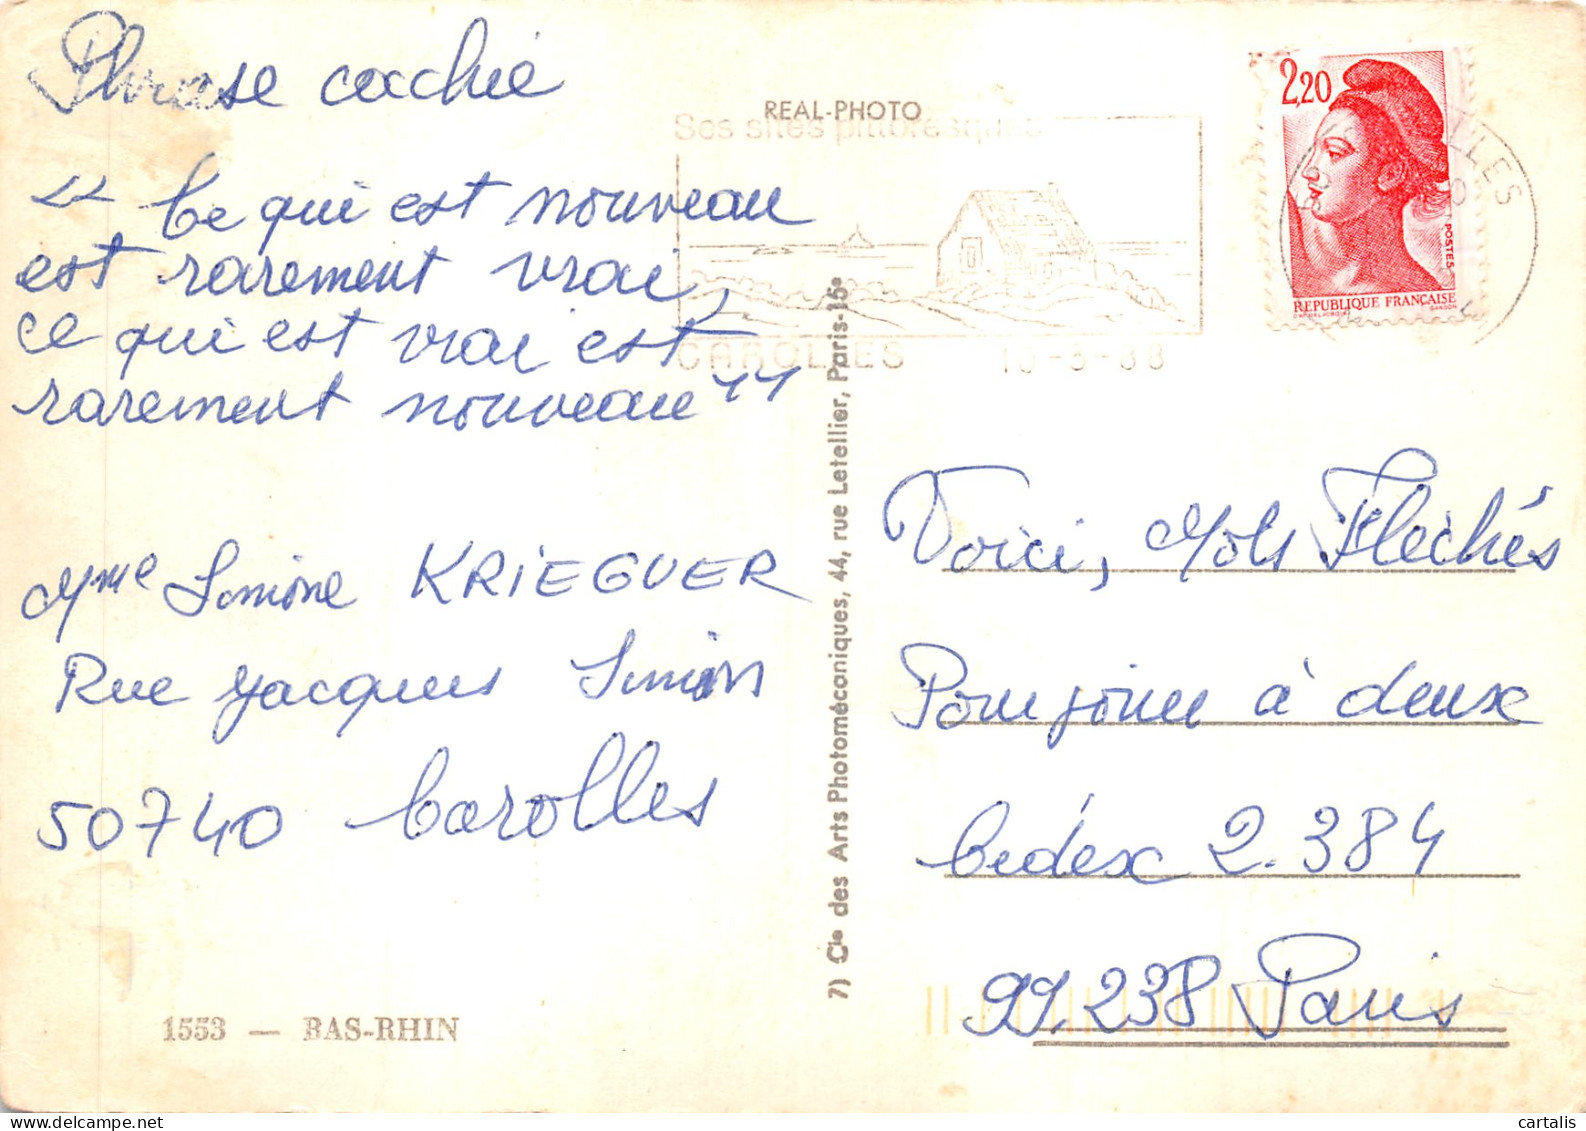 Phrase cachée
REAL-PHOTO
Ses sites pittoresques
CAROLLES
2,20
POSTES
REPUBLIQUE FRANÇAISE
« Ce qui est nouveau
est rarement vrai,
ce qui est vrai est
rarement nouveau "
Mme Simone KRIEGUER
Rue Jacques Simon
50740 Carolles
1553 — BAS-RHIN
7) Cie des Arts Photomécaniques, 44, rue Letellier, Paris-15e
Voici, Mots Fléchés
Pour jouer à deux
Cedex 2.384
99.238 Paris
cartalis